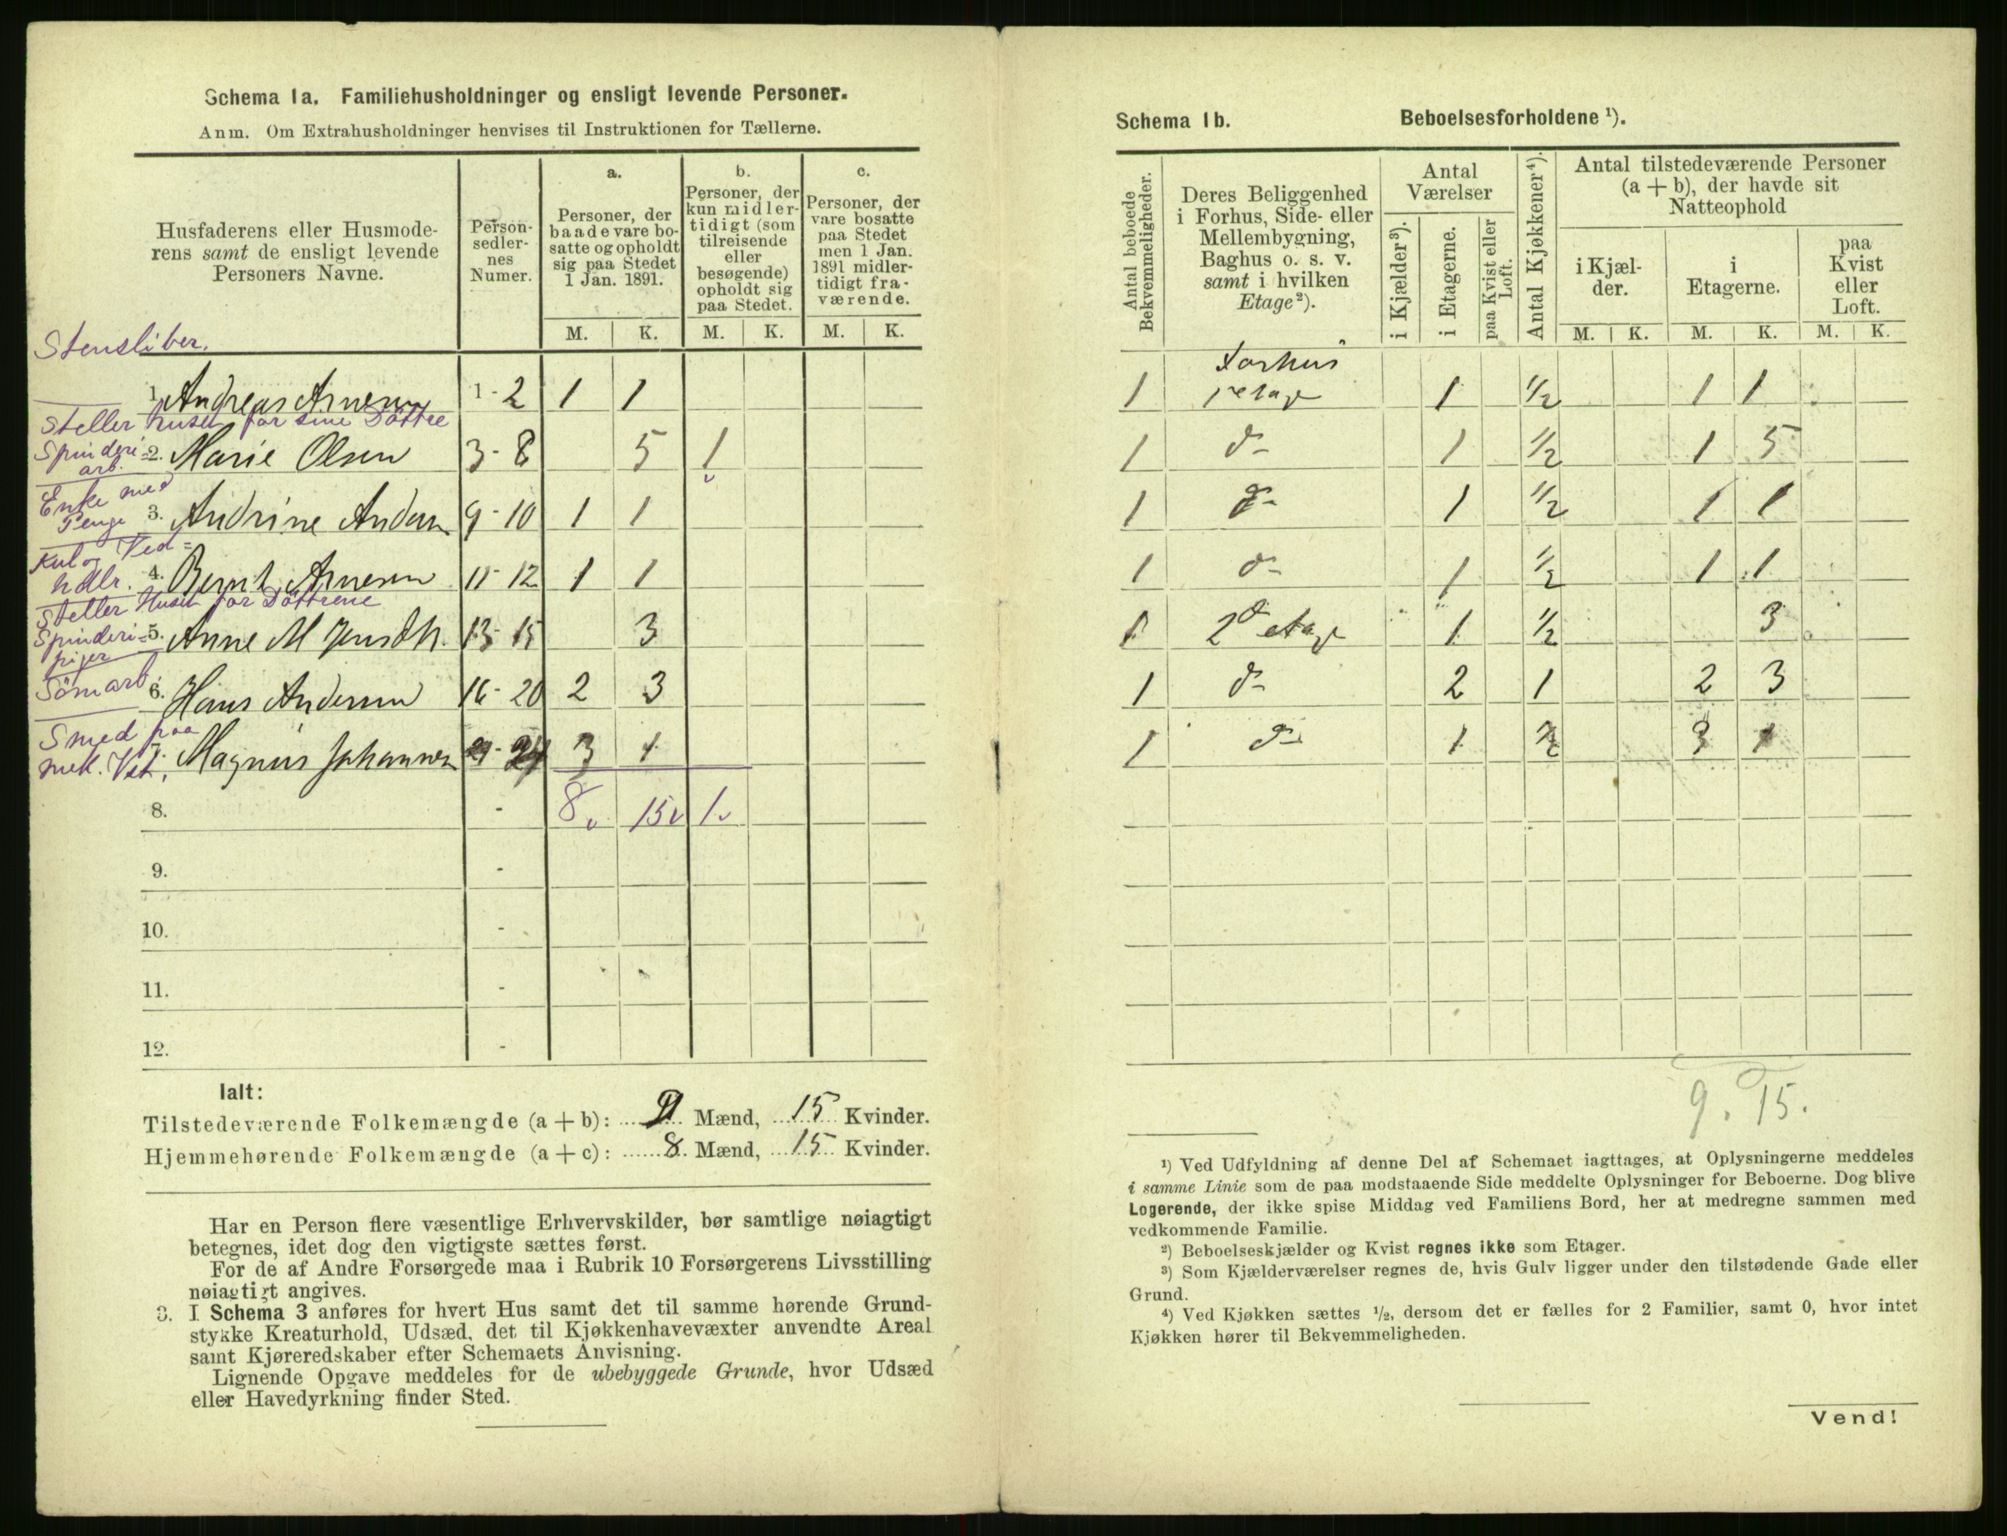 Schema 1a. Familiehusholdninger og ensligt levende Personer.
Anm. Om Extrahusholdninger henvises til Instruktionen for Tællerne.
Husfaderens eller Husmode-
rens samt de ensligt levende
Personers Navne.
Person-
sedler-
nes
Numer.
a.
Personer, der
baade vare bo-
satte og opholdt
sig paa Stedet
1 Jan. 1891.
b.
Personer, der
kun midler-
tidigt (som
tilreisende
eller
besøgende)
opholdt sig
paa Stedet.
c.
Personer, der
vare bosatte
paa Stedet
men 1 Jan.
1891 midler-
tidigt fra-
værende.
M. K. M. K. M. K.
Stensliber.
1. Andreas Arnesen 1-2 1 1
Steller huset for sine Döttre
Spinderi=
arb.
2. Marie Olsen 3-8 5 1
Enke med
Penge
3. Andrine Andersen 9-10 1 1
Kul og Ved=
hdlr.
4. Bernt Arnesen 11-12 1 1
Steller Huset for Döttrene
Spinderi=
piger
5. Anne M Jensdtr. 13-15 3
Sömarb.
6. Hans Andersen 16-20 2 3
Smed paa
mek. Vrk.
7. Magnus Johannesen 21-24 3 1
8. - 8 15 1
9. -
10. -
11. -
12. -
Ialt:
Tilstedeværende Folkemængde (a + b): 9 Mænd, 15 Kvinder.
Hjemmehørende Folkemængde (a + c): 8 Mænd, 15 Kvinder.
Har en Person flere væsentlige Erhvervskilder, bør samtlige nøiagtigt
betegnes, idet dog den vigtigste sættes først.
For de af Andre Forsørgede maa i Rubrik 10 Forsørgerens Livsstilling
nøiagtigt angives.
3. I Schema 3 anføres for hvert Hus samt det til samme hørende Grund-
stykke Kreaturhold, Udsæd, det til Kjøkkenhavevæxter anvendte Areal
samt Kjøreredskaber efter Schemaets Anvisning.
Lignende Opgave meddeles for de ubebyggede Grunde, hvor Udsæd
eller Havedyrkning finder Sted.
Schema 1b. Beboelsesforholdene ¹).
Antal beboede
Bekvemmeligheder.
Deres Beliggenhed
i Forhus, Side- eller
Mellembygning,
Baghus o. s. v.
samt i hvilken
Etage ²).
Antal
Værelser
i Kjælder ³).
i Etagerne.
paa Kvist eller
Loft.
Antal Kjøkkener ⁴).
Antal tilstedeværende Personer
(a + b), der havde sit
Natteophold
i Kjæl-
der.
i
Etagerne.
paa
Kvist
eller
Loft.
M. K. M. K. M. K.
Forhus
1 1 etage 1 ½ 1 1
1 do 1 ½ 1 5
1 do 1 ½ 1 1
1 do 1 ½ 1 1
1 2d etage 1 ½ 3
1 do 2 1 2 3
1 do 1 ½ 3 1
9. 15.
¹) Ved Udfyldning af denne Del af Schemaet iagttages, at Oplysningerne meddeles
i samme Linie som de paa modstaaende Side meddelte Oplysninger for Beboerne. Dog blive
Logerende, der ikke spise Middag ved Familiens Bord, her at medregne sammen med
vedkommende Familie.
²) Beboelseskjælder og Kvist regnes ikke som Etager.
³) Som Kjælderværelser regnes de, hvis Gulv ligger under den tilstødende Gade eller
Grund.
⁴) Ved Kjøkken sættes ½, dersom det er fælles for 2 Familier, samt 0, hvor intet
Kjøkken hører til Bekvemmeligheden.
Vend!